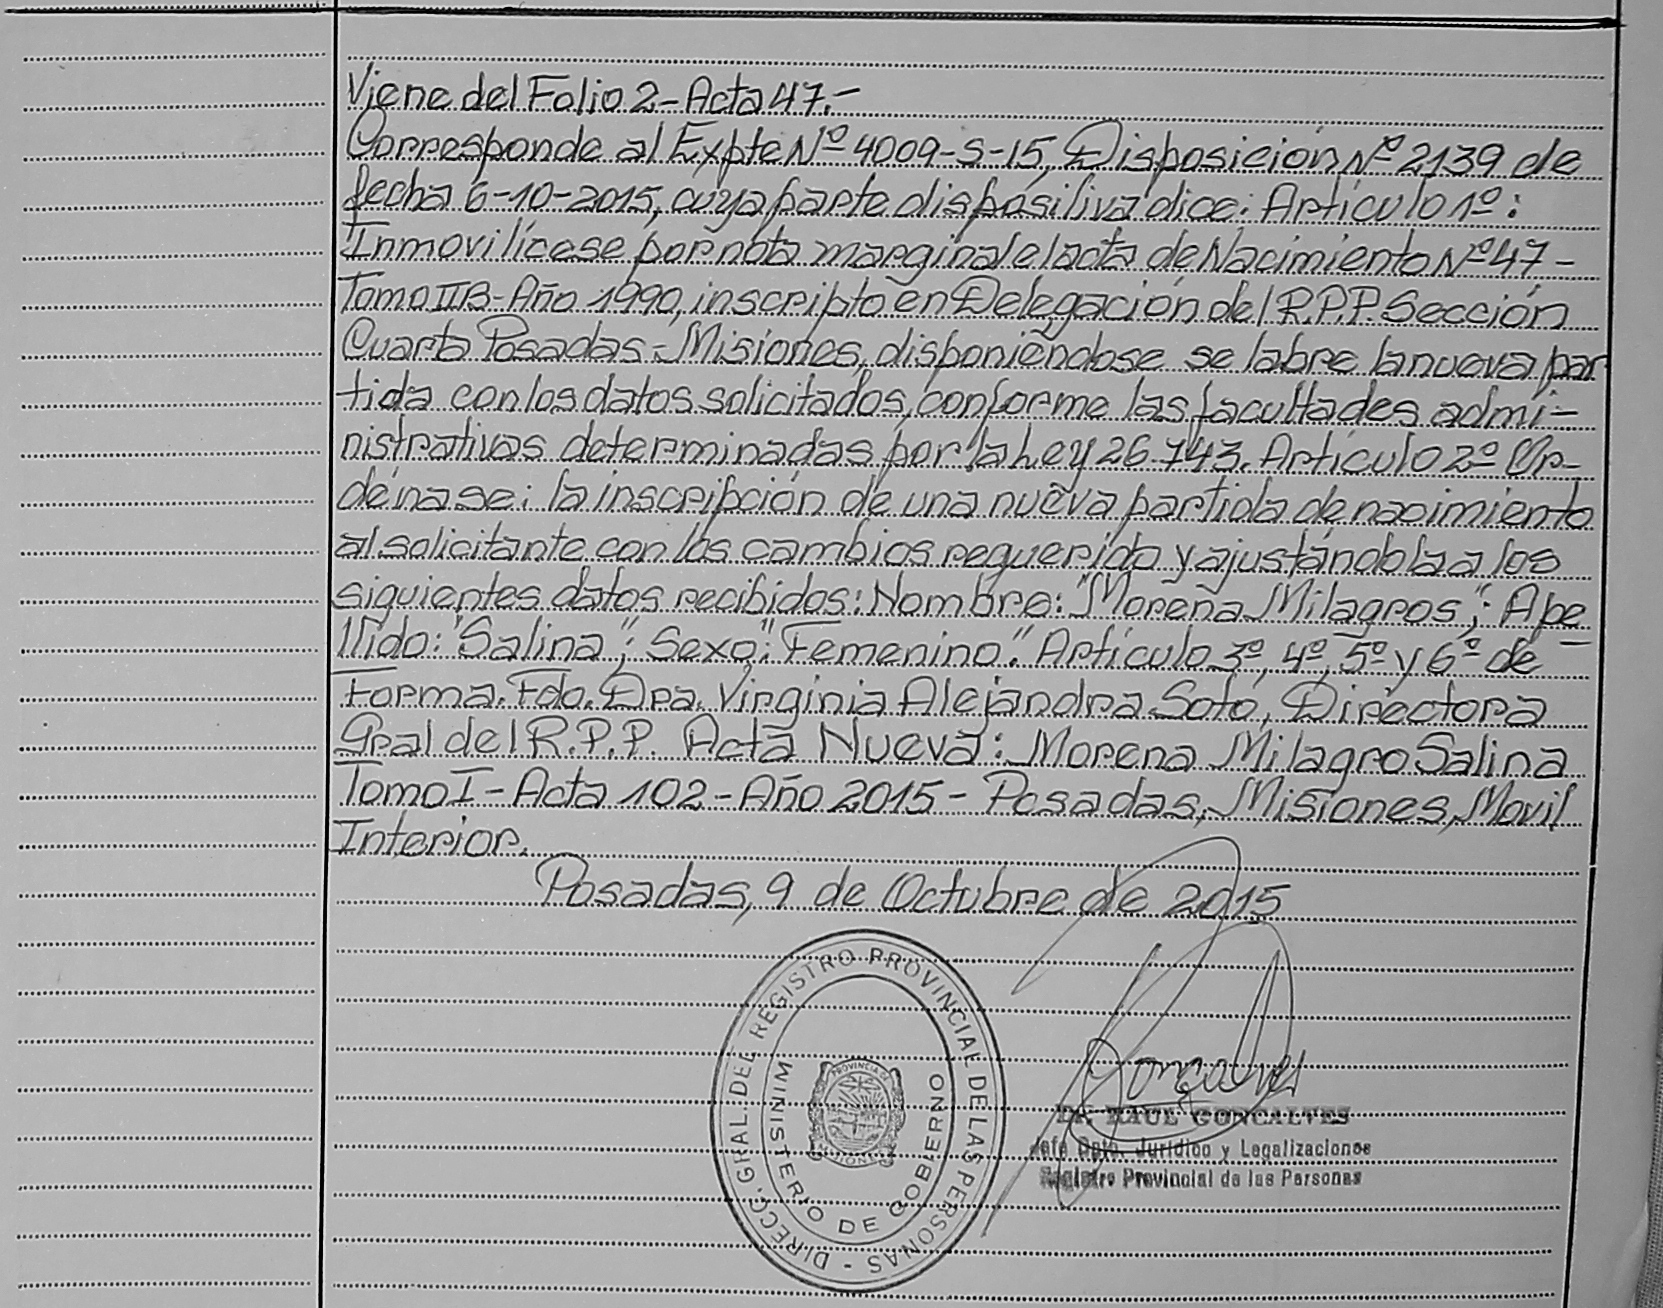 Viene del Folio 2-Acta 47.-
Corresponde al Expte Nº 4009-S-15, Disposición Nº 2139 de
fecha 6-10-2015, cuya parte dispositiva dice: Artículo 1º:
Inmovilícese por nota marginal el acta de Nacimiento Nº 47-
Tomo II B-Año 1990, inscripto en Delegación del R.P.P. Sección
Cuarta Posadas-Misiones, disponiéndose se labre la nueva par
tida con los datos solicitados, conforme las facultades admi-
nistrativas determinadas por la Ley 26.743. Artículo 2º Or-
dénase: la inscripción de una nueva partida de nacimiento
al solicitante con los cambios requerido y ajustándola a los
siguientes datos recibidos: Nombre: "Morena Milagros"; Ape
llido: "Salina"; Sexo: "Femenino". Artículo 3º, 4º, 5º y 6º de
Forma. Fdo. Dra. Virginia Alejandra Soto, Directora
Gral del R.P.P. Acta Nueva: Morena Milagro Salina
Tomo I-Acta 102-Año 2015- Posadas, Misiones, Movil
Interior.
Posadas, 9 de Octubre de 2015
DIRECC. GRAL. DEL REGISTRO PROVINCIAL DE LAS PERSONAS -
MINISTERIO DE GOBIERNO
PROVINCIA DE
MISIONES
Goncalves
Dr. RAUL GONCALVES
Jefe Dpto. Jurídico y Legalizaciones
Registro Provincial de las Personas